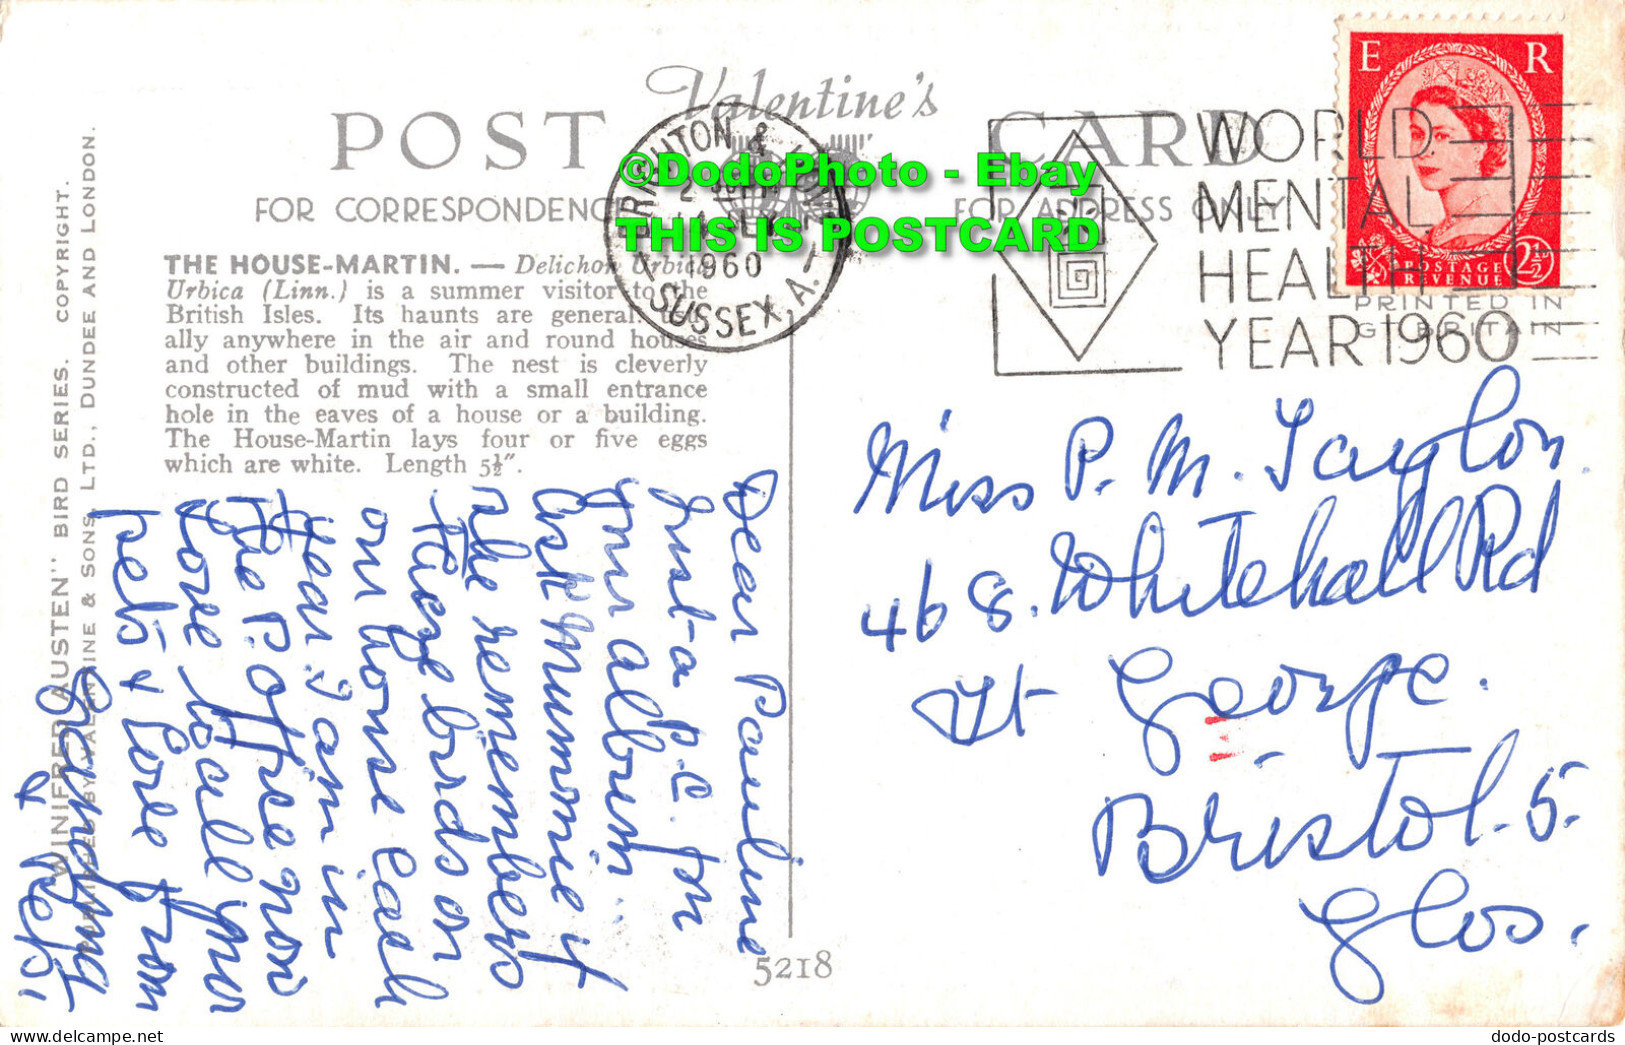 Valentine's
POST CARD
FOR CORRESPONDENC FOR ADDRESS ONLY
THE HOUSE-MARTIN. — Delichon Urbica
Urbica (Linn.) is a summer visitor to the
British Isles. Its haunts are general usu-
ally anywhere in the air and round houses
and other buildings. The nest is cleverly
constructed of mud with a small entrance
hole in the eaves of a house or a building.
The House-Martin lays four or five eggs
which are white. Length 5½".
"WINIFRED AUSTEN" BIRD SERIES. COPYRIGHT.
PUBLISHED BY VALENTINE & SONS, LTD., DUNDEE AND LONDON.
BRIGHTON & HOVE
1960
SUSSEX A.
©DodoPhoto - Ebay
THIS IS POSTCARD
WORLD
MENTAL
HEALTH
YEAR 1960
E R
POSTAGE
REVENUE
2½D
PRINTED IN
GT. BRITAIN
Dear Pauline
Just a P.C. for
your album..
ask Mummie if
she remembers
these birds on
our house each
year. I am in
the P. Office now
love to all your
pets & love from
Grandma
&
Miss P. M. Taylor.
468. Whitehall Rd
St George.
Bristol. 5.
Glos.
5218
dodo-postcards